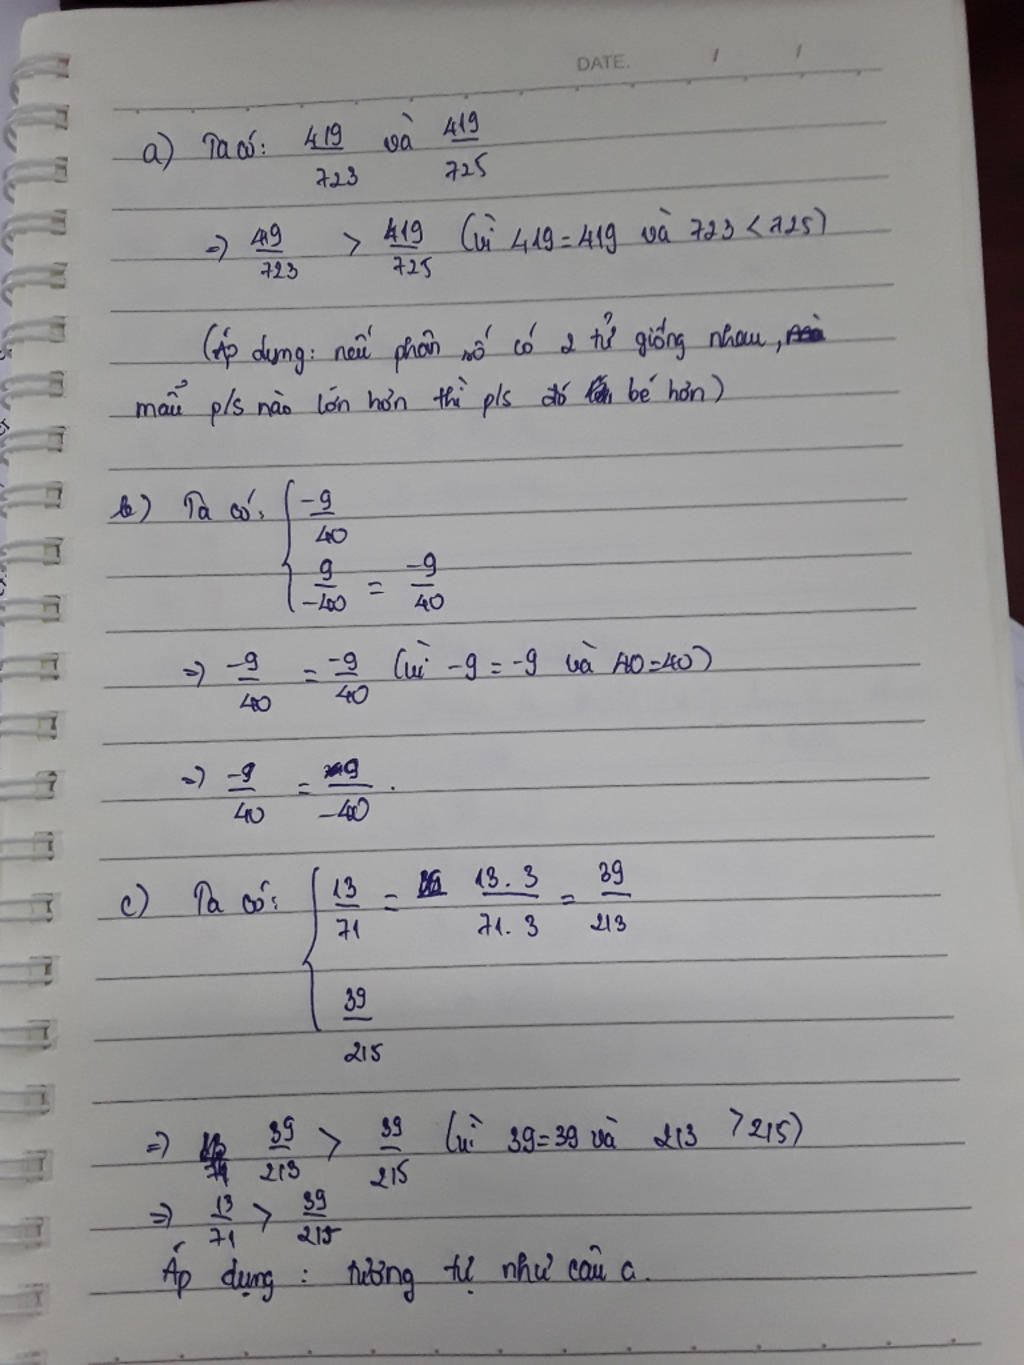 DATE. / /
a) Ta có: 419/723 và 419/725
=> 419/723 > 419/725 (vì 419=419 và 723 < 725)
(Áp dụng: nếu phân số có 2 tử giống nhau,
mẫu p/s nào lớn hơn thì p/s đó bé hơn)
b) Ta có: { -9/40
9/-40 = -9/40
=> -9/40 = -9/40 (vì -9 = -9 và 40=40)
=> -9/40 = 9/-40.
c) Ta có: { 13/71 = 13.3/71.3 = 39/213
39/215
=> 39/213 > 39/215 (vì 39=39 và 213 > 215)
=> 13/71 > 39/215
Áp dụng : tương tự như câu a.